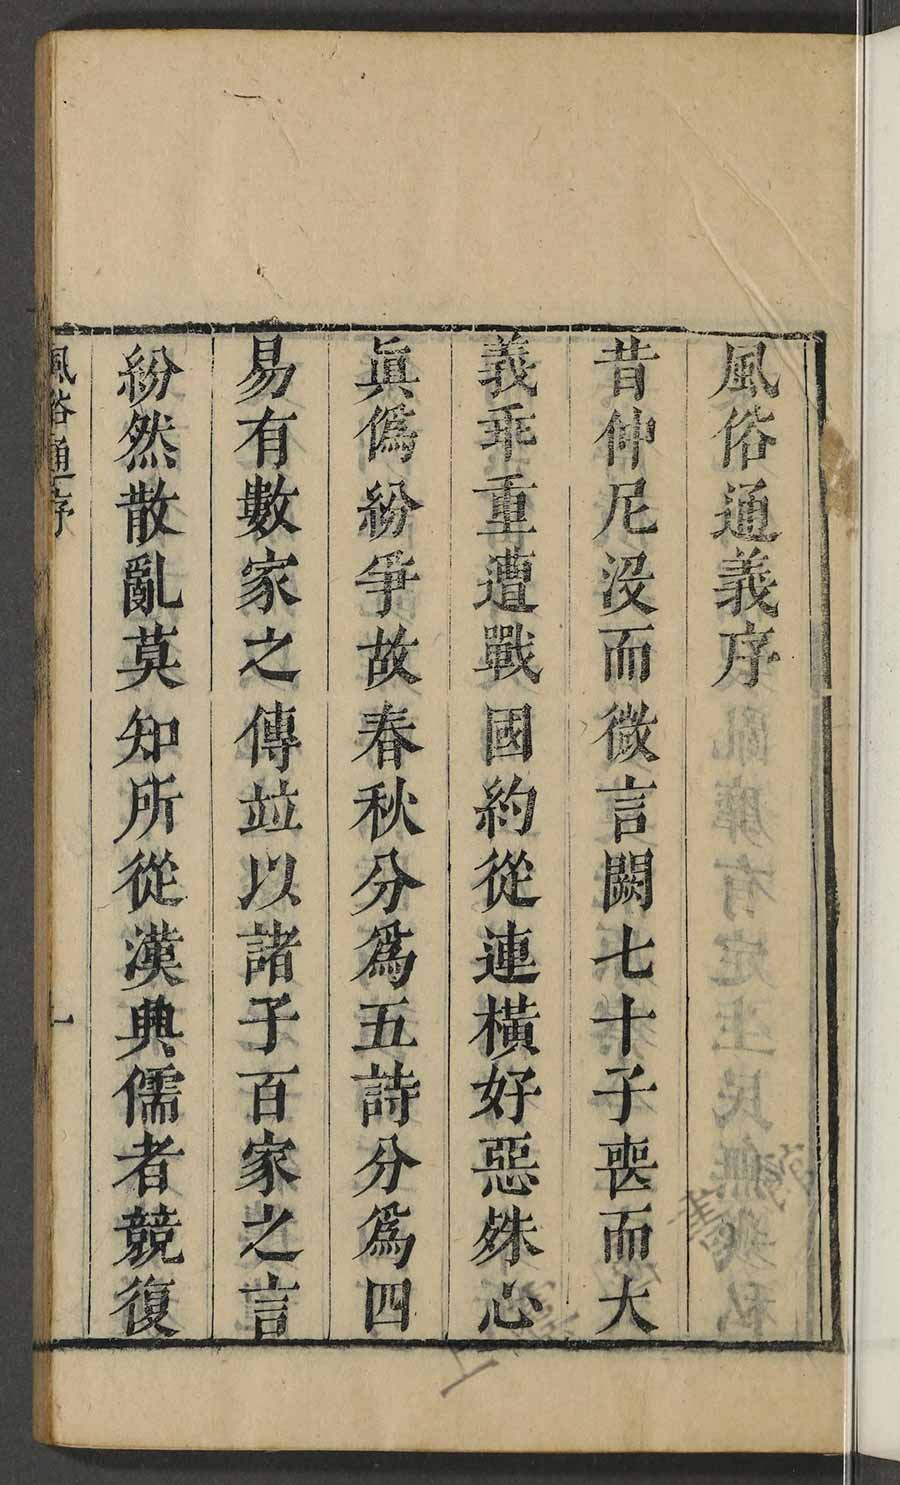 風俗通義序
昔仲尼没而微言闕七十子喪而大
義乖重遭戰國約從連橫好惡殊心
眞僞紛爭故春秋分爲五詩分爲四
易有數家之傳竝以諸子百家之言
紛然散亂莫知所從漢興儒者競復
風俗通序
一